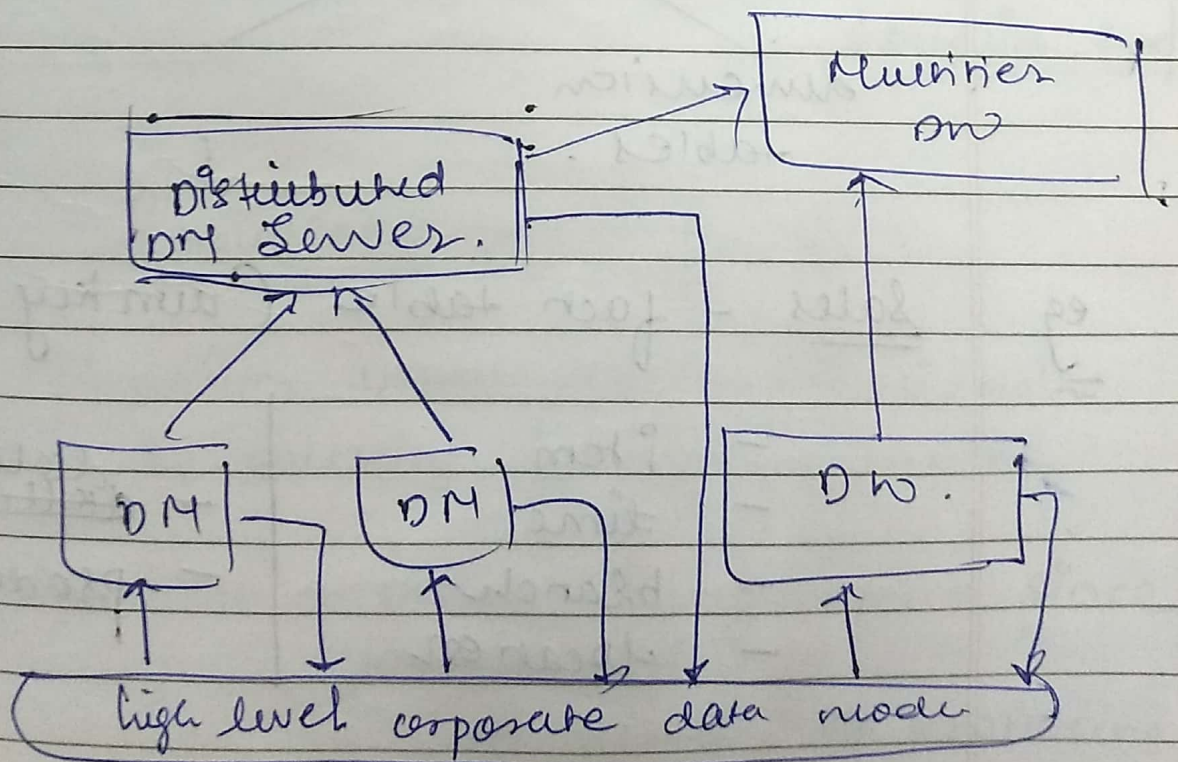 Multitier
DW
Distributed
DM Server.
DM
DM
DW.
high level corporate data mode